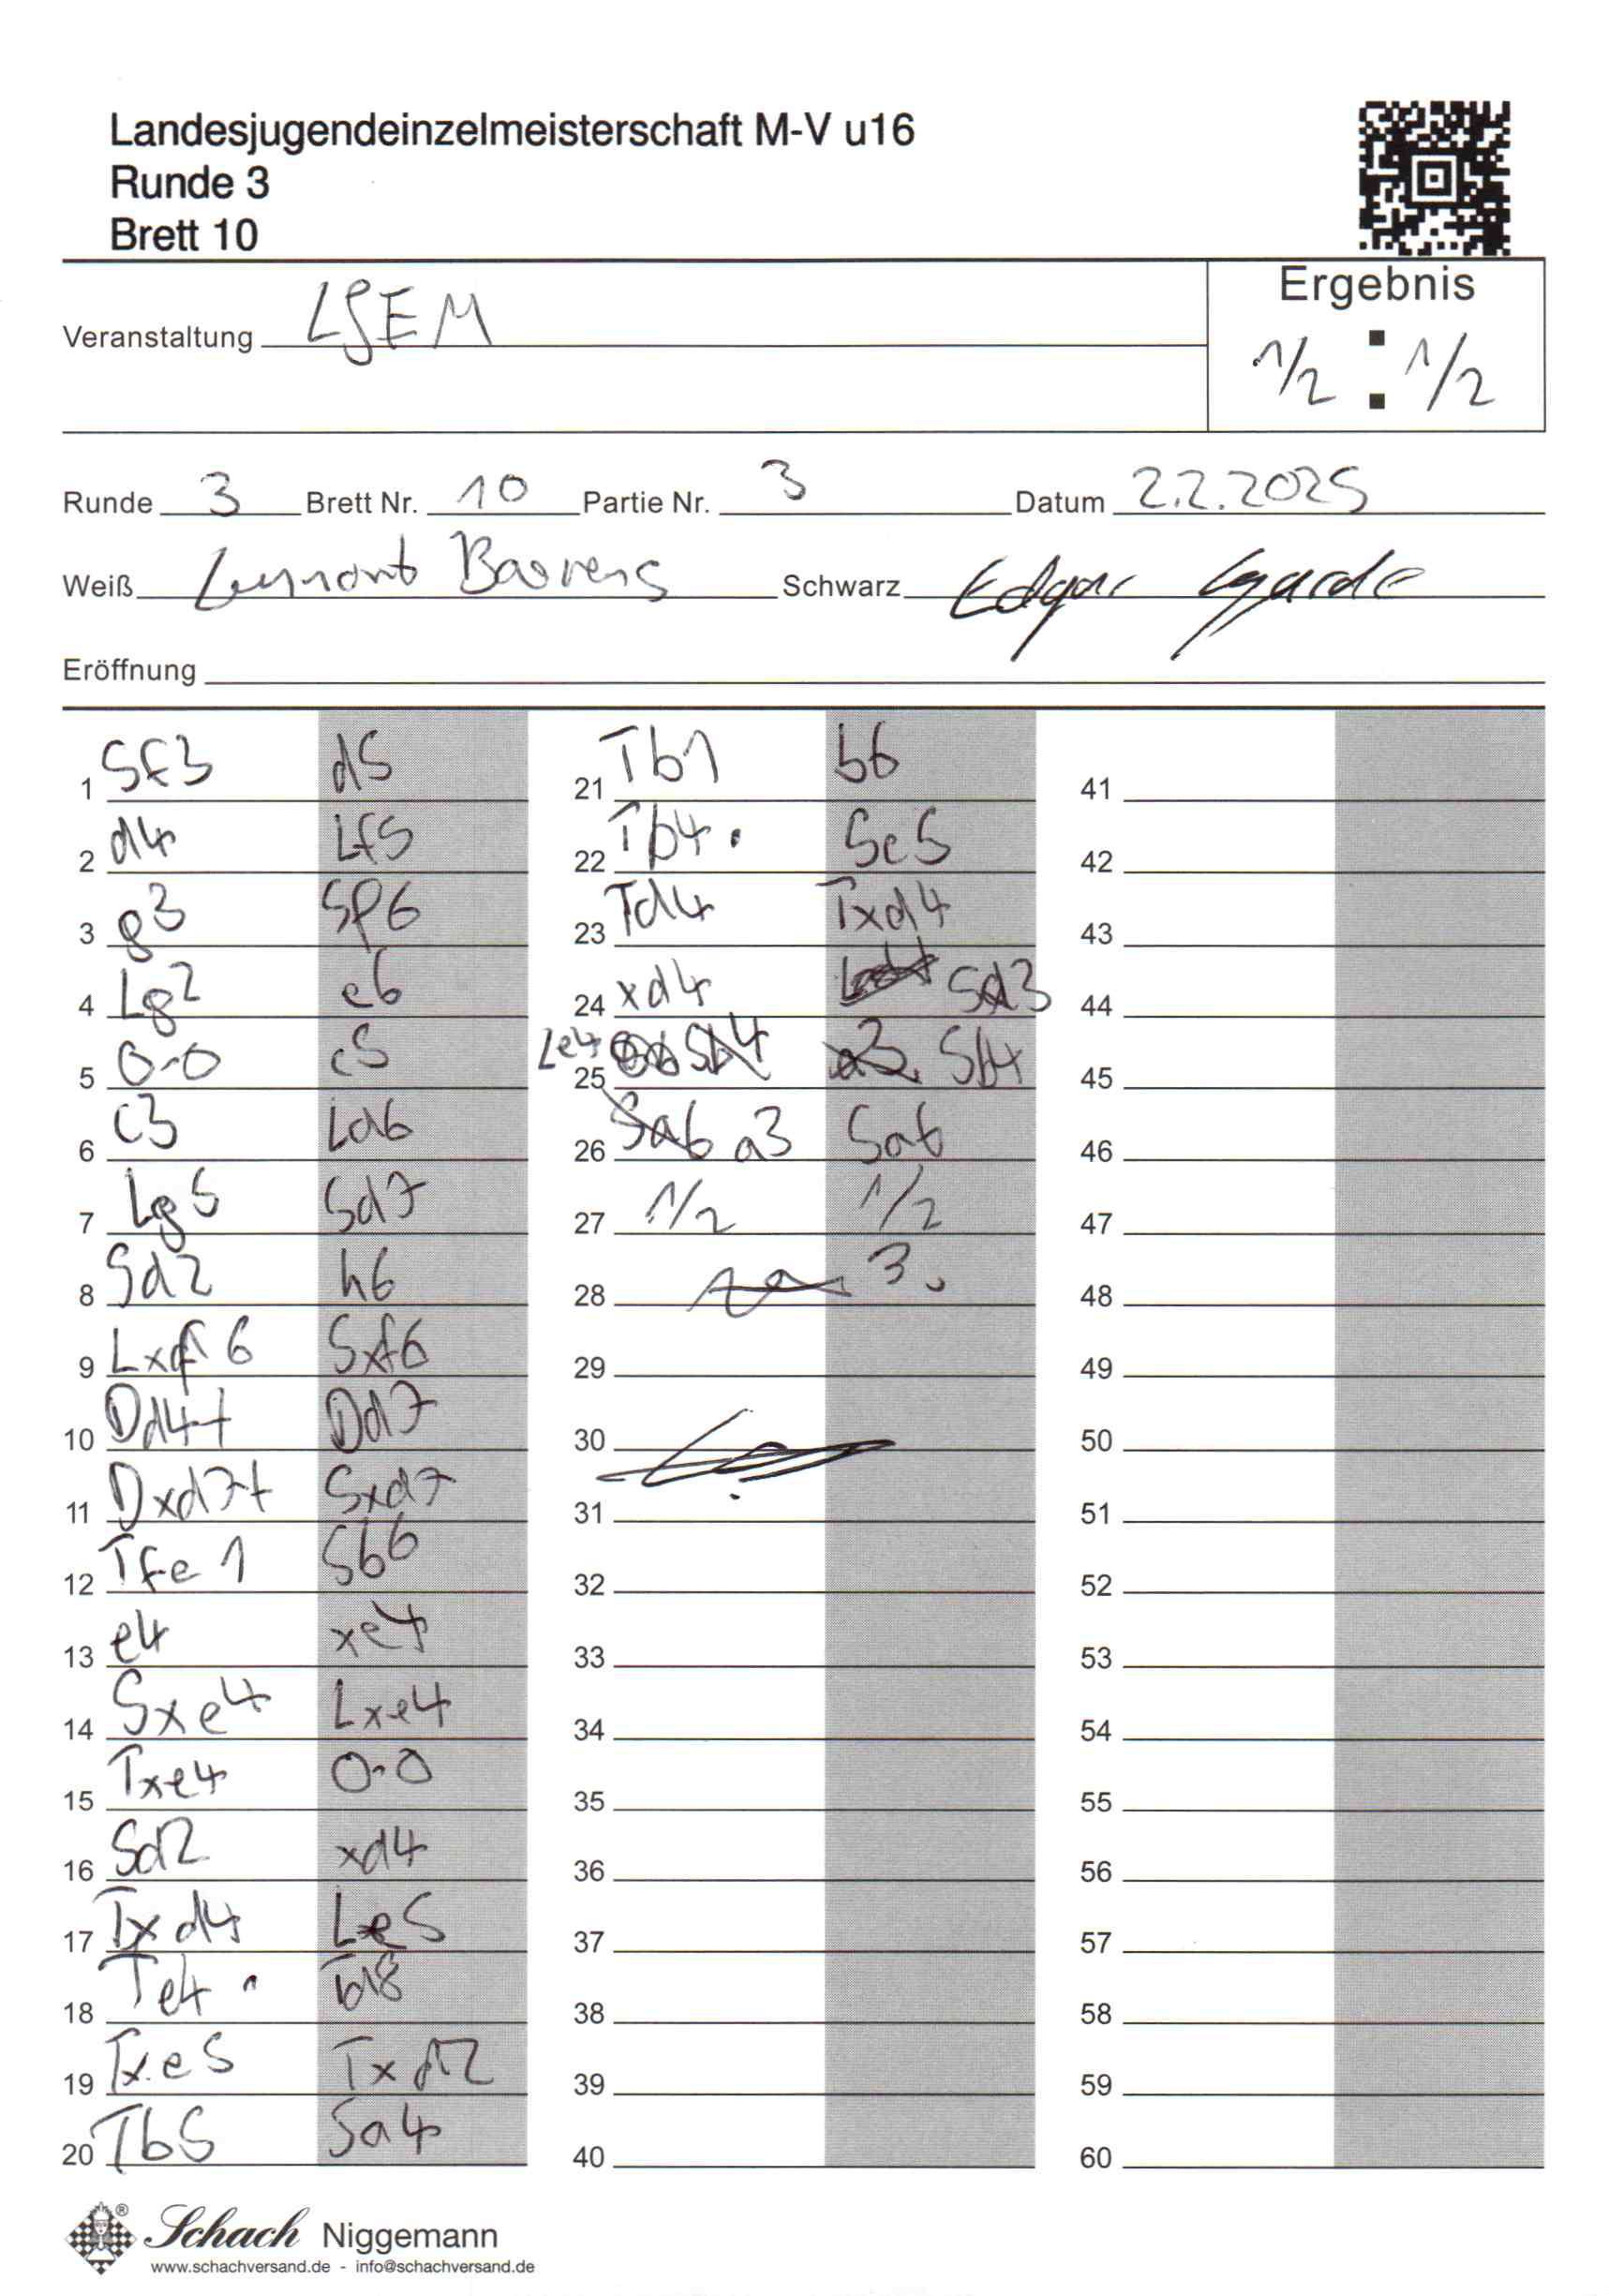 Landesjugendeinzelmeisterschaft M-V u16
Runde 3
Brett 10
Ergebnis
Veranstaltung LJEM
1/2 : 1/2
Runde 3 Brett Nr. 10 Partie Nr. 3 Datum 2.2.2025
Weiß Lennart Schwarz Edgar
Eröffnung
1 Sf3 d5 21 Tb1 b6 41
2 d4 Lf5 22 Tb4 Sc5 42
3 g3 Sf6 23 Td4 Txd4 43
4 Lg2 e6 24 xd4 Sd3 44
5 0-0 c5 25 Le4 Sb4 45
6 c3 Ld6 26 a3 Sa6 46
7 Lg5 Sd7 27 1/2 1/2 47
8 Sd2 h6 28 48
9 Lxf6 Sxf6 29 49
10 Da4+ Dd7 30 50
11 Dxd7+ Sxd7 31 51
12 Tfe1 Sb6 32 52
13 e4 xe4 33 53
14 Sxe4 Lxe4 34 54
15 Txe4 0-0 35 55
16 Sd2 xd4 36 56
17 Txd4 Le5 37 57
18 Te4 Td8 38 58
19 Txe5 Txd2 39 59
20 Tb5 Sa4 40 60
Schach Niggemann
www.schachversand.de - info@schachversand.de